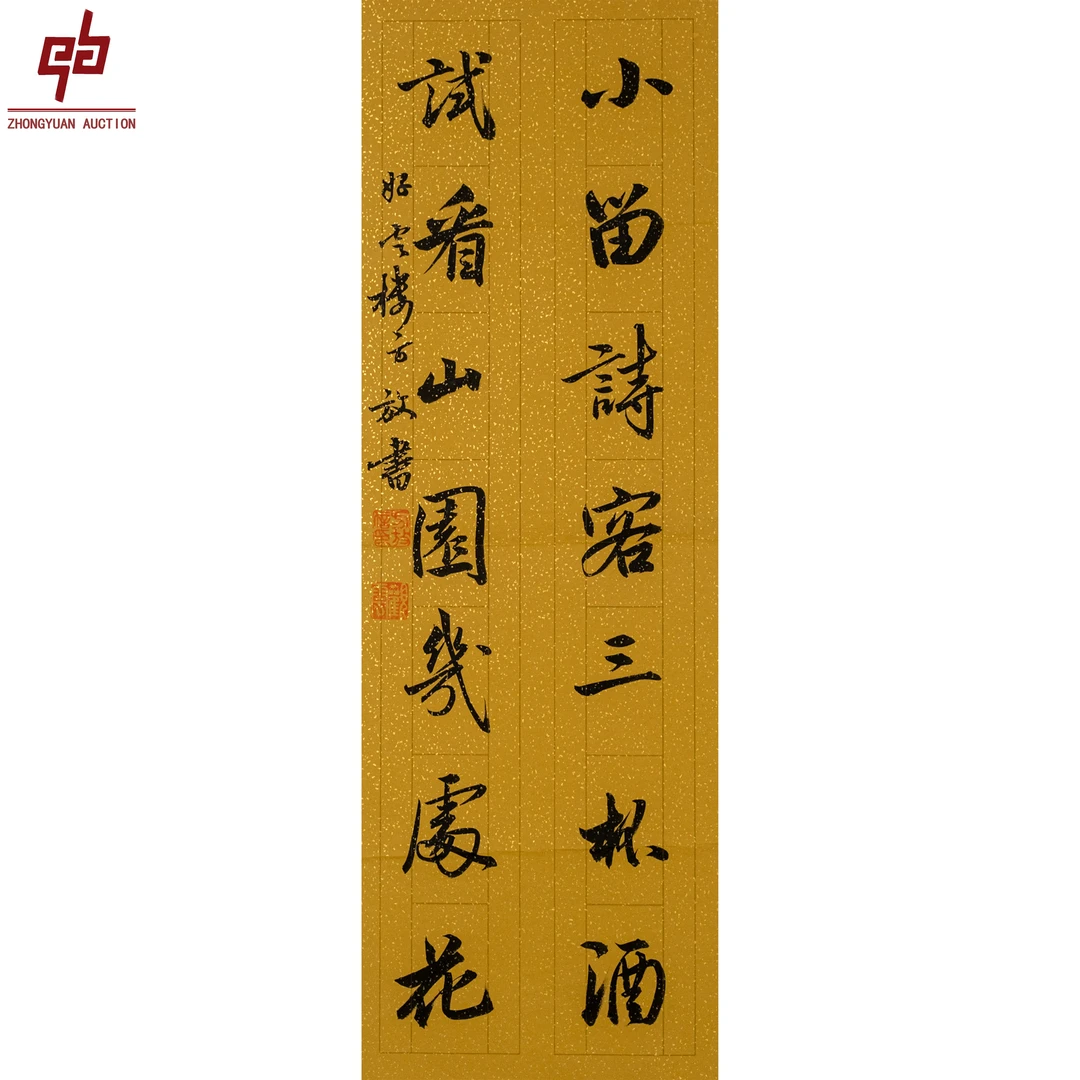 ZHONGYUAN AUCTION
小留詩客三杯酒
試看山園幾處花
好雲樓方放書